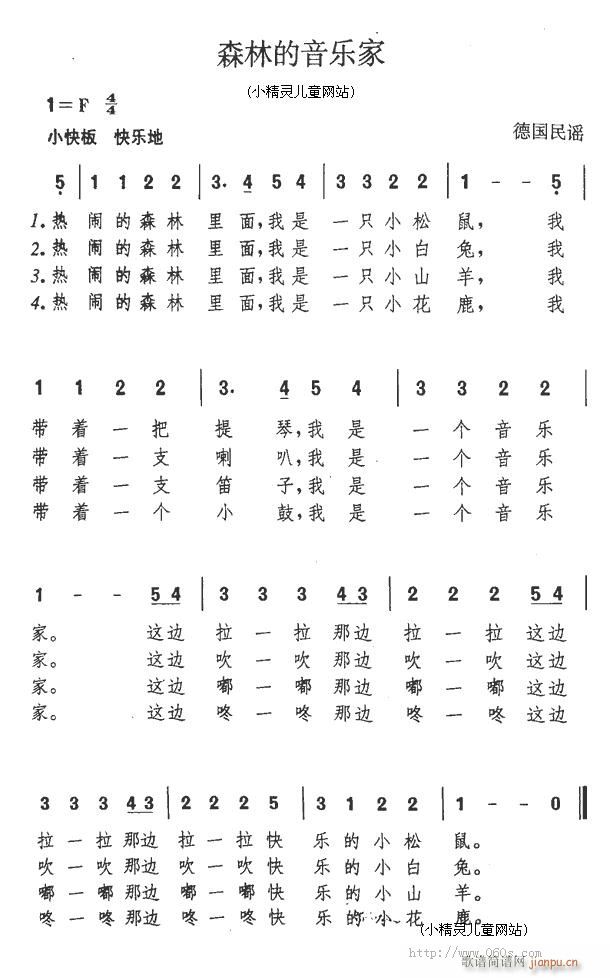 森林的音乐家
(小精灵儿童网站)
1=F 4/4
小快板 快乐地
德国民谣
5 | 1 1 2 2 | 3. 4 5 4 | 3 3 2 2 | 1 - - 5 |
1.热 闹的森林 里面,我是 一只小松 鼠, 我
2.热 闹的森林 里面,我是 一只小白 兔, 我
3.热 闹的森林 里面,我是 一只小山 羊, 我
4.热 闹的森林 里面,我是 一只小花 鹿, 我
1 1 2 2 | 3. 4 5 4 | 3 3 2 2 |
带着一把 提琴,我是 一个音乐
带着一支 喇叭,我是 一个音乐
带着一支 笛子,我是 一个音乐
带着一个 小鼓,我是 一个音乐
1 - - 5 4 | 3 3 3 4 3 | 2 2 2 5 4 |
家。 这边 拉一拉那边 拉一拉这边
家。 这边 吹一吹那边 吹一吹这边
家。 这边 嘟一嘟那边 嘟一嘟这边
家。 这边 咚一咚那边 咚一咚这边
3 3 3 4 3 | 2 2 2 5 | 3 1 2 2 | 1 - - 0 ‖
拉一拉那边 拉一拉快 乐的小松 鼠。
吹一吹那边 吹一吹快 乐的小白 兔。
嘟一嘟那边 嘟一嘟快 乐的小山 羊。
咚一咚那边 咚一咚快 乐的小花 鹿。
(小精灵儿童网站)
http://www.060s.com
歌谱简谱网
jianpu.cn